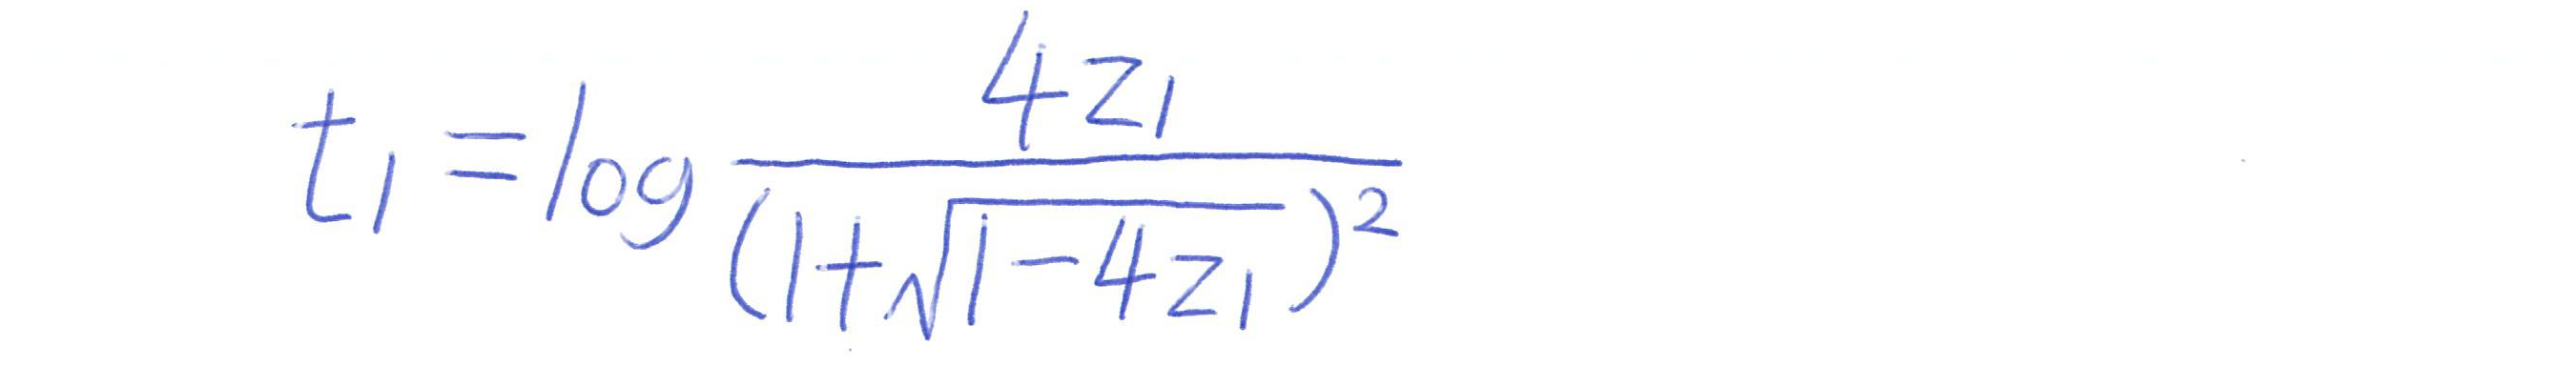 t₁ = log \frac{4z_1}{(1+\sqrt{1-4z_1})^2}